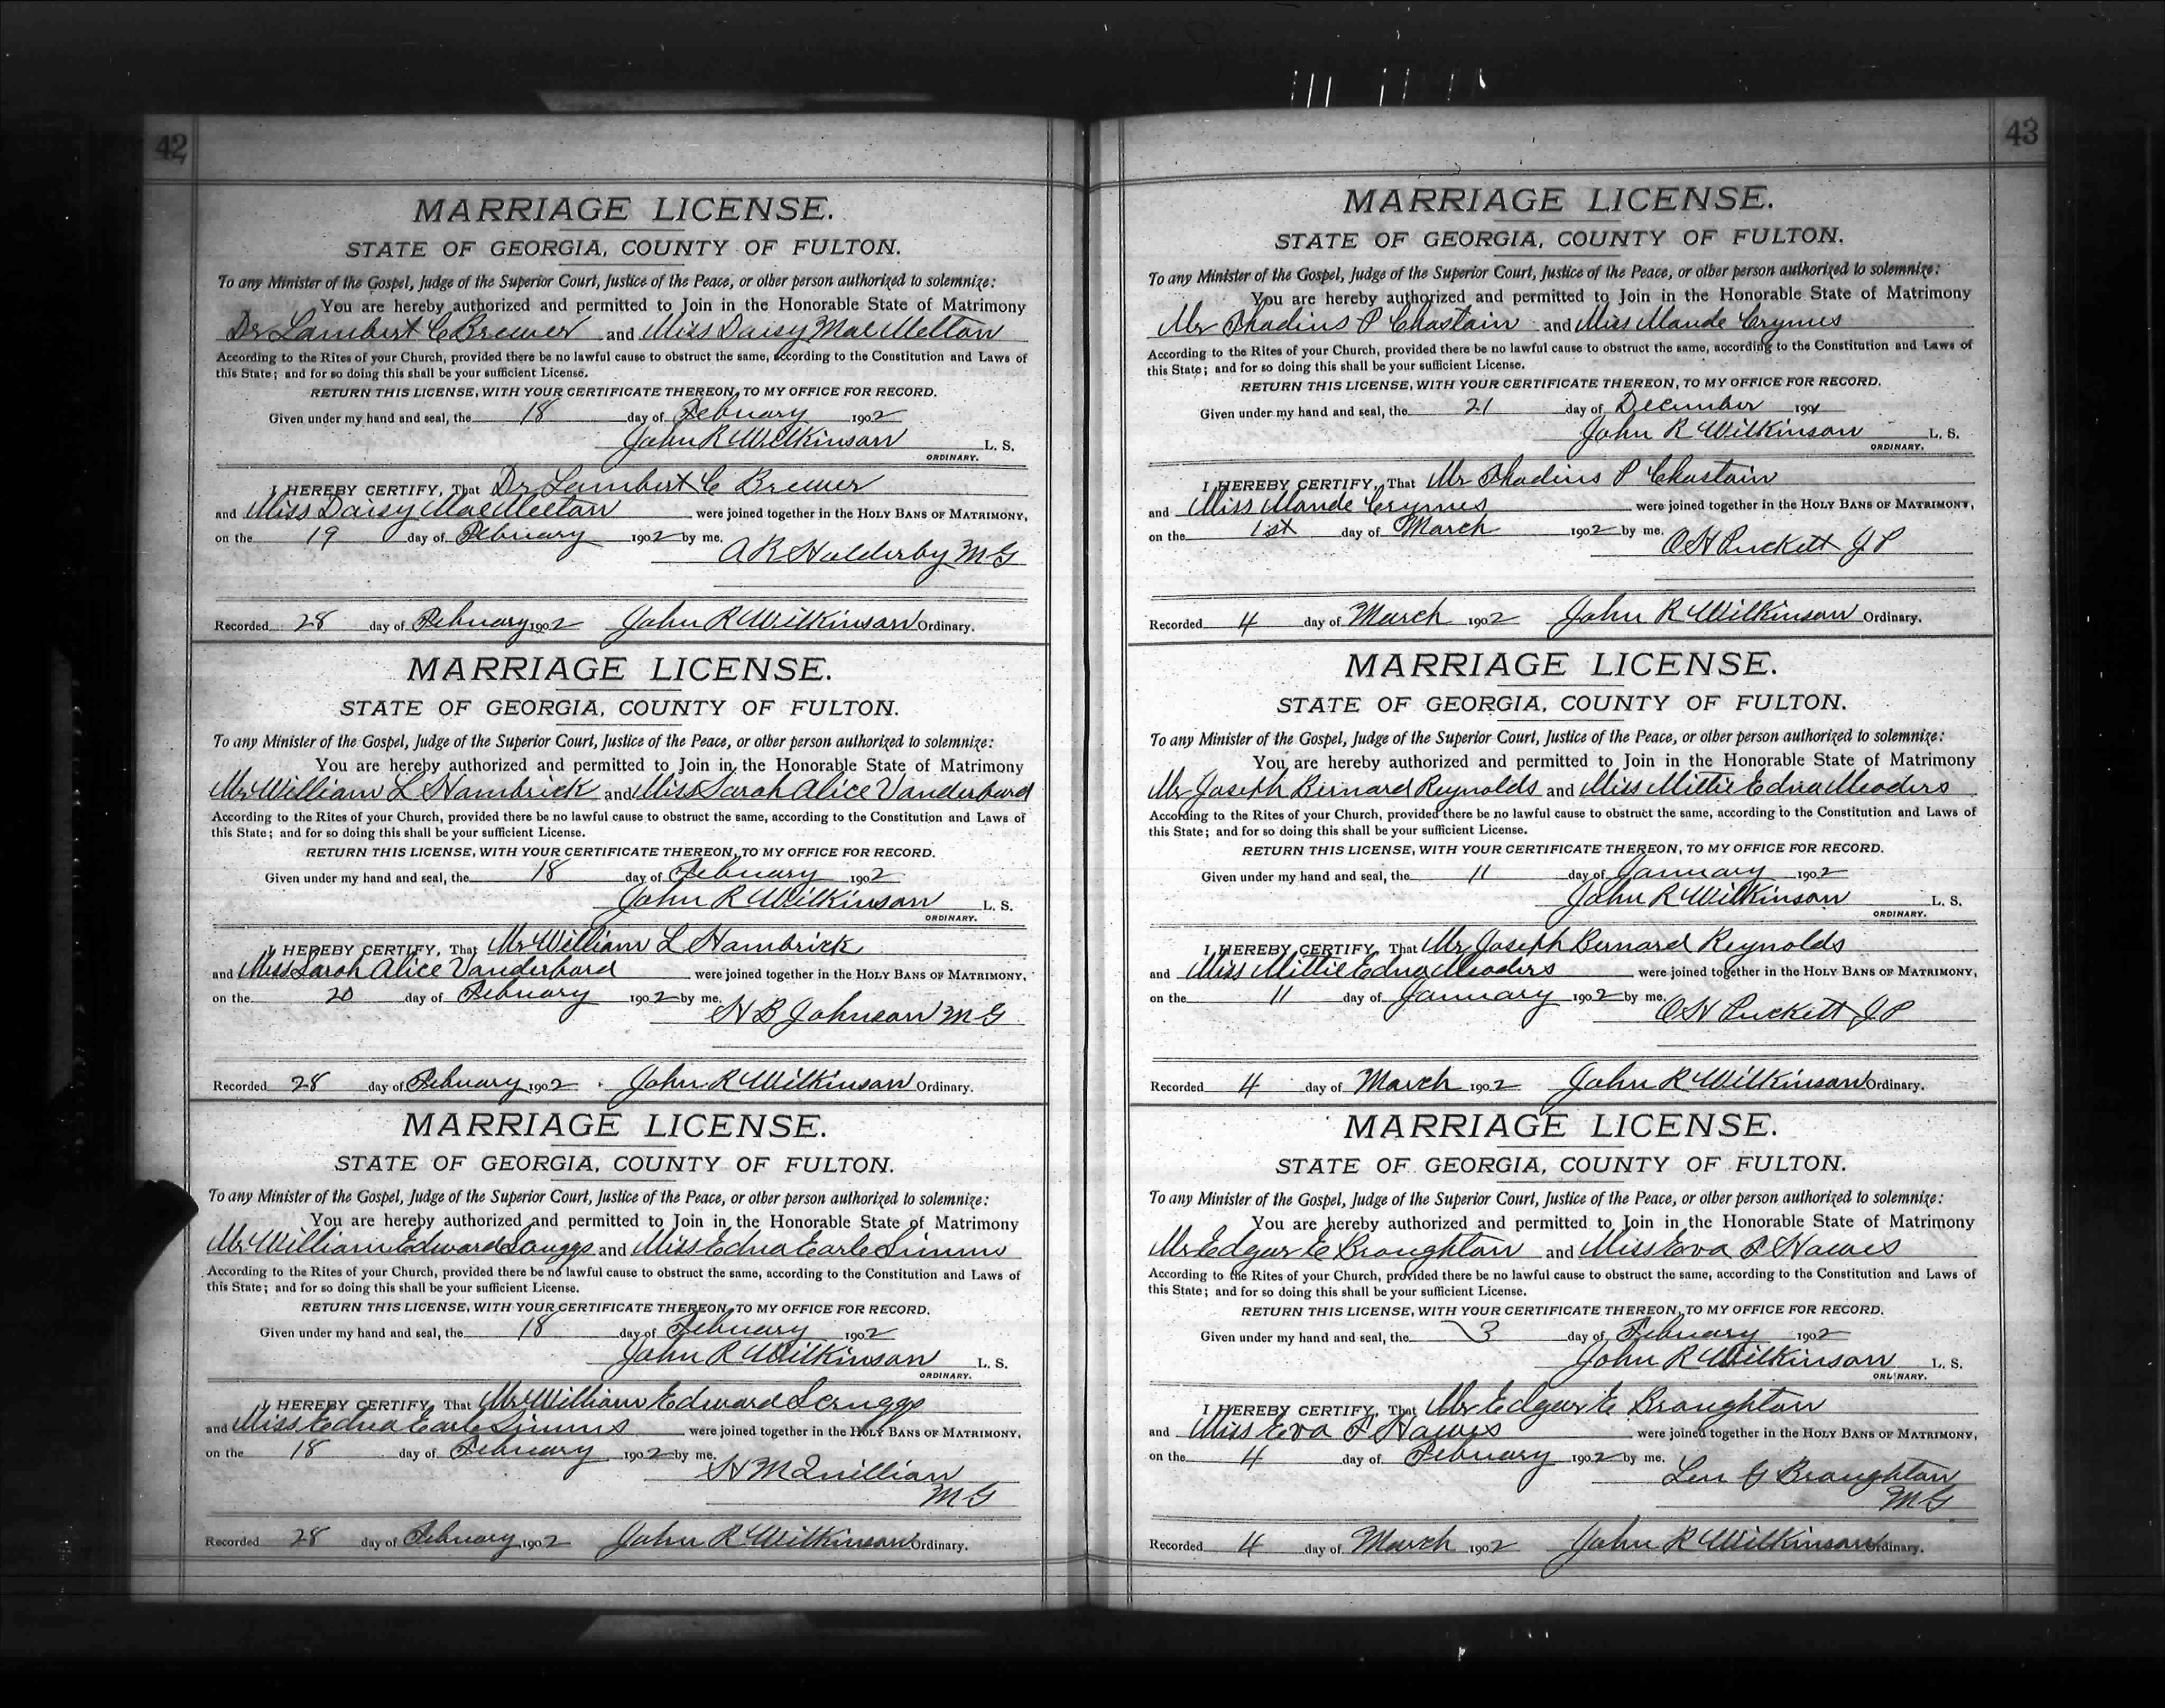 42
MARRIAGE LICENSE.
STATE OF GEORGIA, COUNTY OF FULTON.
To any Minister of the Gospel, Judge of the Superior Court, Justice of the Peace, or other person authorized to solemnize:
You are hereby authorized and permitted to Join in the Honorable State of Matrimony
Dr Lambert C Brewer and Miss Daisy Mae Melton
According to the Rites of your Church, provided there be no lawful cause to obstruct the same, according to the Constitution and Laws of
this State; and for so doing this shall be your sufficient License.
RETURN THIS LICENSE, WITH YOUR CERTIFICATE THEREON, TO MY OFFICE FOR RECORD.
Given under my hand and seal, the 18 day of February 1902
John R Wilkinson L. S.
ORDINARY.
I HEREBY CERTIFY, That Dr Lambert C Brewer
and Miss Daisy Mae Melton were joined together in the HOLY BANS OF MATRIMONY,
on the 19 day of February 1902 by me.
A R Holderby M G
Recorded 28 day of February 1902 John R Wilkinson Ordinary.
MARRIAGE LICENSE.
STATE OF GEORGIA, COUNTY OF FULTON.
To any Minister of the Gospel, Judge of the Superior Court, Justice of the Peace, or other person authorized to solemnize:
You are hereby authorized and permitted to Join in the Honorable State of Matrimony
Mr William L Hambrick and Miss Sarah Alice Vanderbard
According to the Rites of your Church, provided there be no lawful cause to obstruct the same, according to the Constitution and Laws of
this State; and for so doing this shall be your sufficient License.
RETURN THIS LICENSE, WITH YOUR CERTIFICATE THEREON, TO MY OFFICE FOR RECORD.
Given under my hand and seal, the 18 day of February 1902
John R Wilkinson L. S.
ORDINARY.
I HEREBY CERTIFY, That Mr William L Hambrick
and Miss Sarah Alice Vanderbard were joined together in the HOLY BANS OF MATRIMONY,
on the 20 day of February 1902 by me.
H B Johnson M G
Recorded 28 day of February 1902 John R Wilkinson Ordinary.
MARRIAGE LICENSE.
STATE OF GEORGIA, COUNTY OF FULTON.
To any Minister of the Gospel, Judge of the Superior Court, Justice of the Peace, or other person authorized to solemnize:
You are hereby authorized and permitted to Join in the Honorable State of Matrimony
Mr William Edward Scruggs and Miss Edna Earle Simms
According to the Rites of your Church, provided there be no lawful cause to obstruct the same, according to the Constitution and Laws of
this State; and for so doing this shall be your sufficient License.
RETURN THIS LICENSE, WITH YOUR CERTIFICATE THEREON, TO MY OFFICE FOR RECORD.
Given under my hand and seal, the 18 day of February 1902
John R Wilkinson L. S.
ORDINARY.
I HEREBY CERTIFY, That Mr William Edward Scruggs
and Miss Edna Earle Simms were joined together in the HOLY BANS OF MATRIMONY,
on the 18 day of February 1902 by me.
H M Quillian
M G
Recorded 28 day of February 1902 John R Wilkinson Ordinary.
43
MARRIAGE LICENSE.
STATE OF GEORGIA, COUNTY OF FULTON.
To any Minister of the Gospel, Judge of the Superior Court, Justice of the Peace, or other person authorized to solemnize:
You are hereby authorized and permitted to Join in the Honorable State of Matrimony
Mr Thadius P Chastain and Miss Maude Crymes
According to the Rites of your Church, provided there be no lawful cause to obstruct the same, according to the Constitution and Laws of
this State; and for so doing this shall be your sufficient License.
RETURN THIS LICENSE, WITH YOUR CERTIFICATE THEREON, TO MY OFFICE FOR RECORD.
Given under my hand and seal, the 21 day of December 1901
John R Wilkinson L. S.
ORDINARY.
I HEREBY CERTIFY, That Mr Thadius P Chastain
and Miss Maude Crymes were joined together in the HOLY BANS OF MATRIMONY,
on the 1st day of March 1902 by me.
O H Puckett J P
Recorded 4 day of March 1902 John R Wilkinson Ordinary.
MARRIAGE LICENSE.
STATE OF GEORGIA, COUNTY OF FULTON.
To any Minister of the Gospel, Judge of the Superior Court, Justice of the Peace, or other person authorized to solemnize:
You are hereby authorized and permitted to Join in the Honorable State of Matrimony
Mr Joseph Bernard Reynolds and Miss Mittie Edna Meaders
According to the Rites of your Church, provided there be no lawful cause to obstruct the same, according to the Constitution and Laws of
this State; and for so doing this shall be your sufficient License.
RETURN THIS LICENSE, WITH YOUR CERTIFICATE THEREON, TO MY OFFICE FOR RECORD.
Given under my hand and seal, the 11 day of January 1902
John R Wilkinson L. S.
ORDINARY.
I HEREBY CERTIFY, That Mr Joseph Bernard Reynolds
and Miss Mittie Edna Meaders were joined together in the HOLY BANS OF MATRIMONY,
on the 11 day of January 1902 by me.
O H Puckett J P
Recorded 4 day of March 1902 John R Wilkinson Ordinary.
MARRIAGE LICENSE.
STATE OF GEORGIA, COUNTY OF FULTON.
To any Minister of the Gospel, Judge of the Superior Court, Justice of the Peace, or other person authorized to solemnize:
You are hereby authorized and permitted to Join in the Honorable State of Matrimony
Mr Edgar E Broughton and Miss Eva P Hawes
According to the Rites of your Church, provided there be no lawful cause to obstruct the same, according to the Constitution and Laws of
this State; and for so doing this shall be your sufficient License.
RETURN THIS LICENSE, WITH YOUR CERTIFICATE THEREON, TO MY OFFICE FOR RECORD.
Given under my hand and seal, the 3 day of February 1902
John R Wilkinson L. S.
ORDINARY.
I HEREBY CERTIFY, That Mr Edgar E Broughton
and Miss Eva P Hawes were joined together in the HOLY BANS OF MATRIMONY,
on the 4 day of February 1902 by me.
Len G Broughton
M G
Recorded 4 day of March 1902 John R Wilkinson Ordinary.